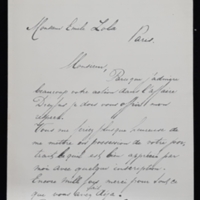 Monsieur Emile Zola
Paris.
Monsieur,
Puisque j'admire
beaucoup votre action dans l'affaire
Dreyfus je vous offre mon
respect.
Vous me feriez plaisir immense de
me mettre en possession de votre
est bien apprécié par
moi avec quelque inscription.
Encore mille fois merci pour tout ce
que vous avez